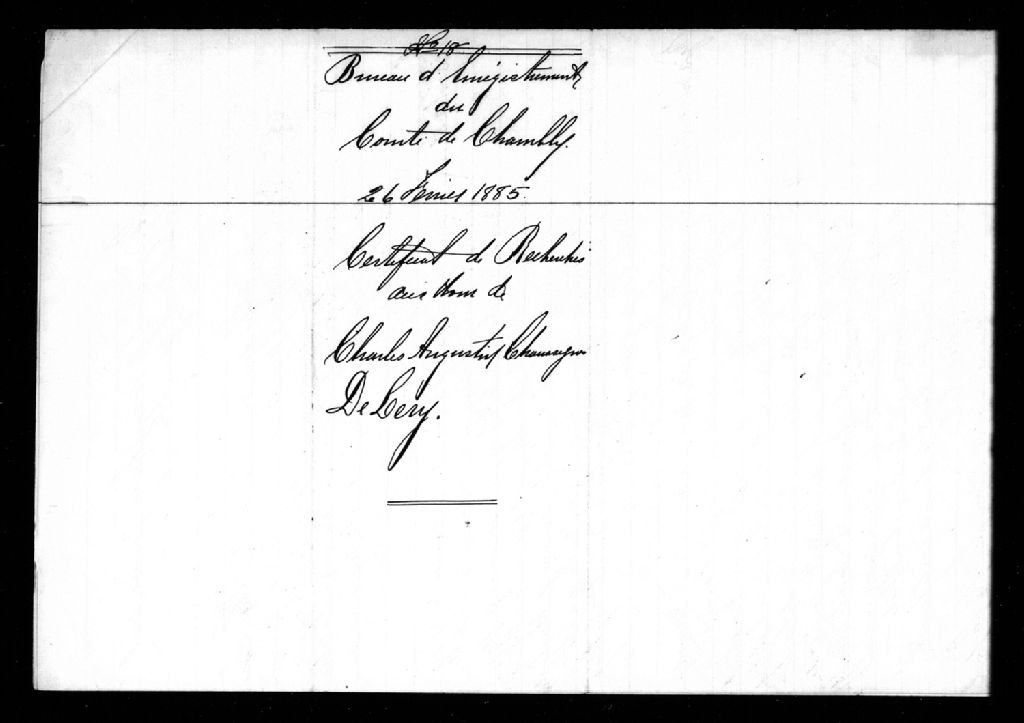 No 18
Bureau d'Enregistrement
du
Comté de Chambly.
26 Février 1885.
Certificat de Recherches
aux Noms de
Charles Augustus Chaussegros
De Léry.